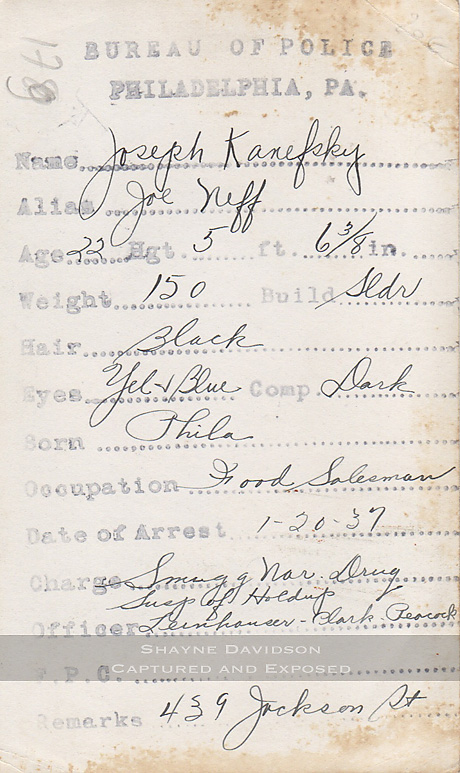 179
BUREAU OF POLICE
PHILADELPHIA, PA.
Name Joseph Kanefsky
Alias Joe Neff
Age 22 Hgt. 5 ft. 6 3/8 in.
Weight 150 Build Sldr
Hair Black
Eyes Yel & Blue Comp. Dark
Born Phila
Occupation Food Salesman
Date of Arrest 1-20-37
Charge Smugg Nar. Drug
Susp of Holdup
Officer Leinhauser - Clark - Peacock
SHAYNE DAVIDSON
F.P.C.
CAPTURED AND EXPOSED
Remarks 439 Jackson St